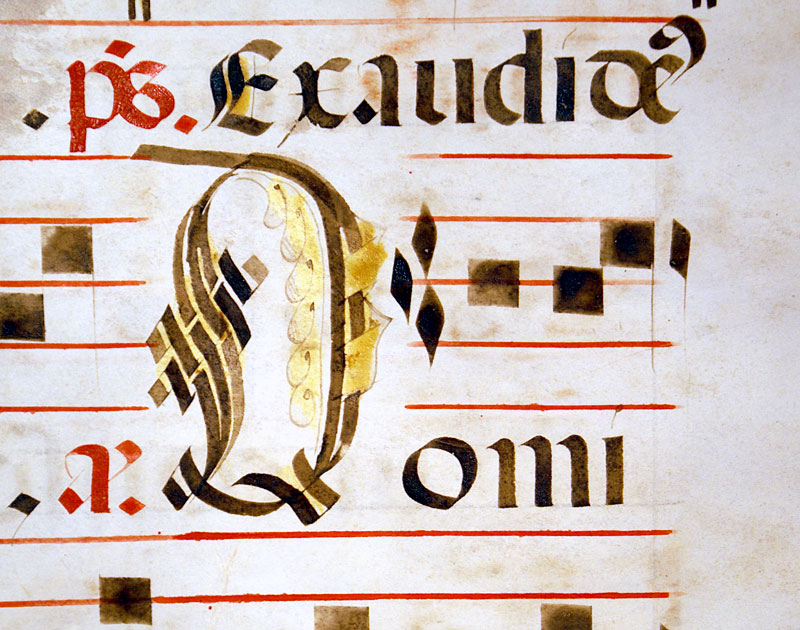 ps. Exaudi de
a. Domi